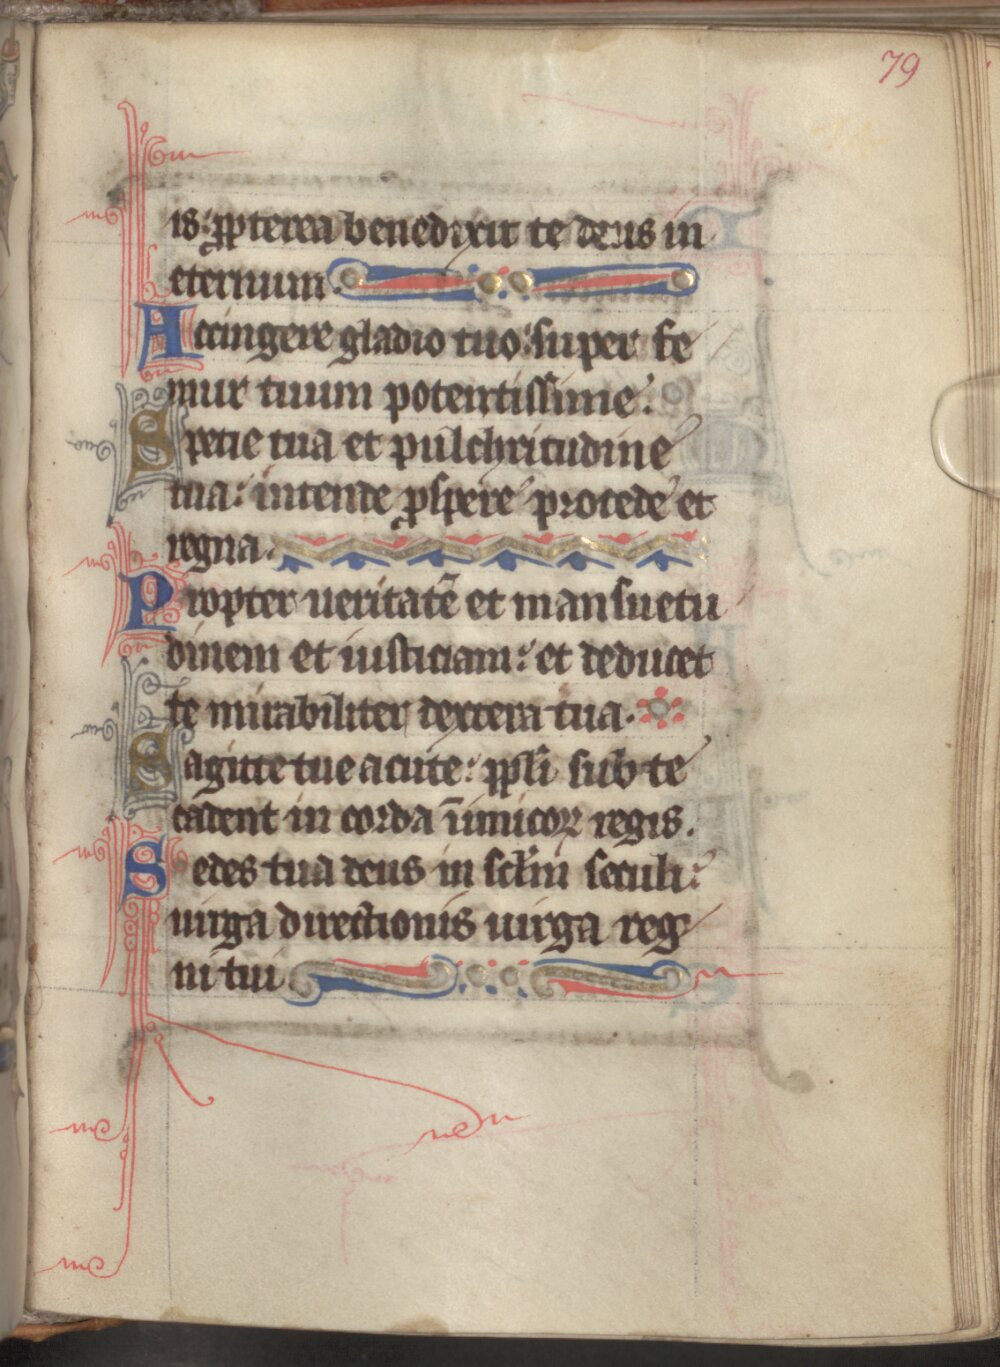 79
is: ꝓpterea benedixit te deus in
eternum.
Accingere gladio tuo: super fe
mur tuum potentissime.
Specie tua et pulchritudine
tua: intende ꝓspere procede et
regna.
Propter ueritatē et mansuetu
dinem et iusticiam: et deducet
te mirabiliter dextera tua.
Sagitte tue acute: ppl̄i sub te
cadent in corda īimicoꝝ regis.
Sedes tua deus in scl̄m seculi:
uirga directionis uirga reg
ni tui